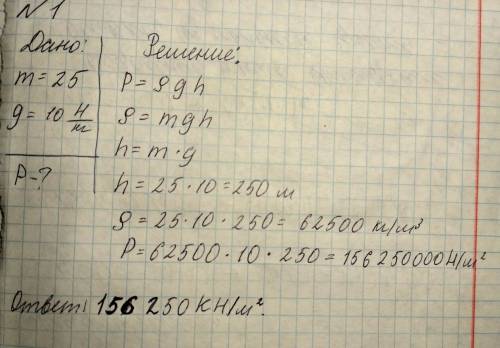 N1
Дано:
m=25
g=10 Н/кг
P-?
Решение:
P=ρgh
ρ=mgh
h=m·g
h=25·10=250 м
ρ=25·10·250= 62500 кг/м³
P=62500·10·250=156250000Н/м²
Ответ: 156 250 КН/м².